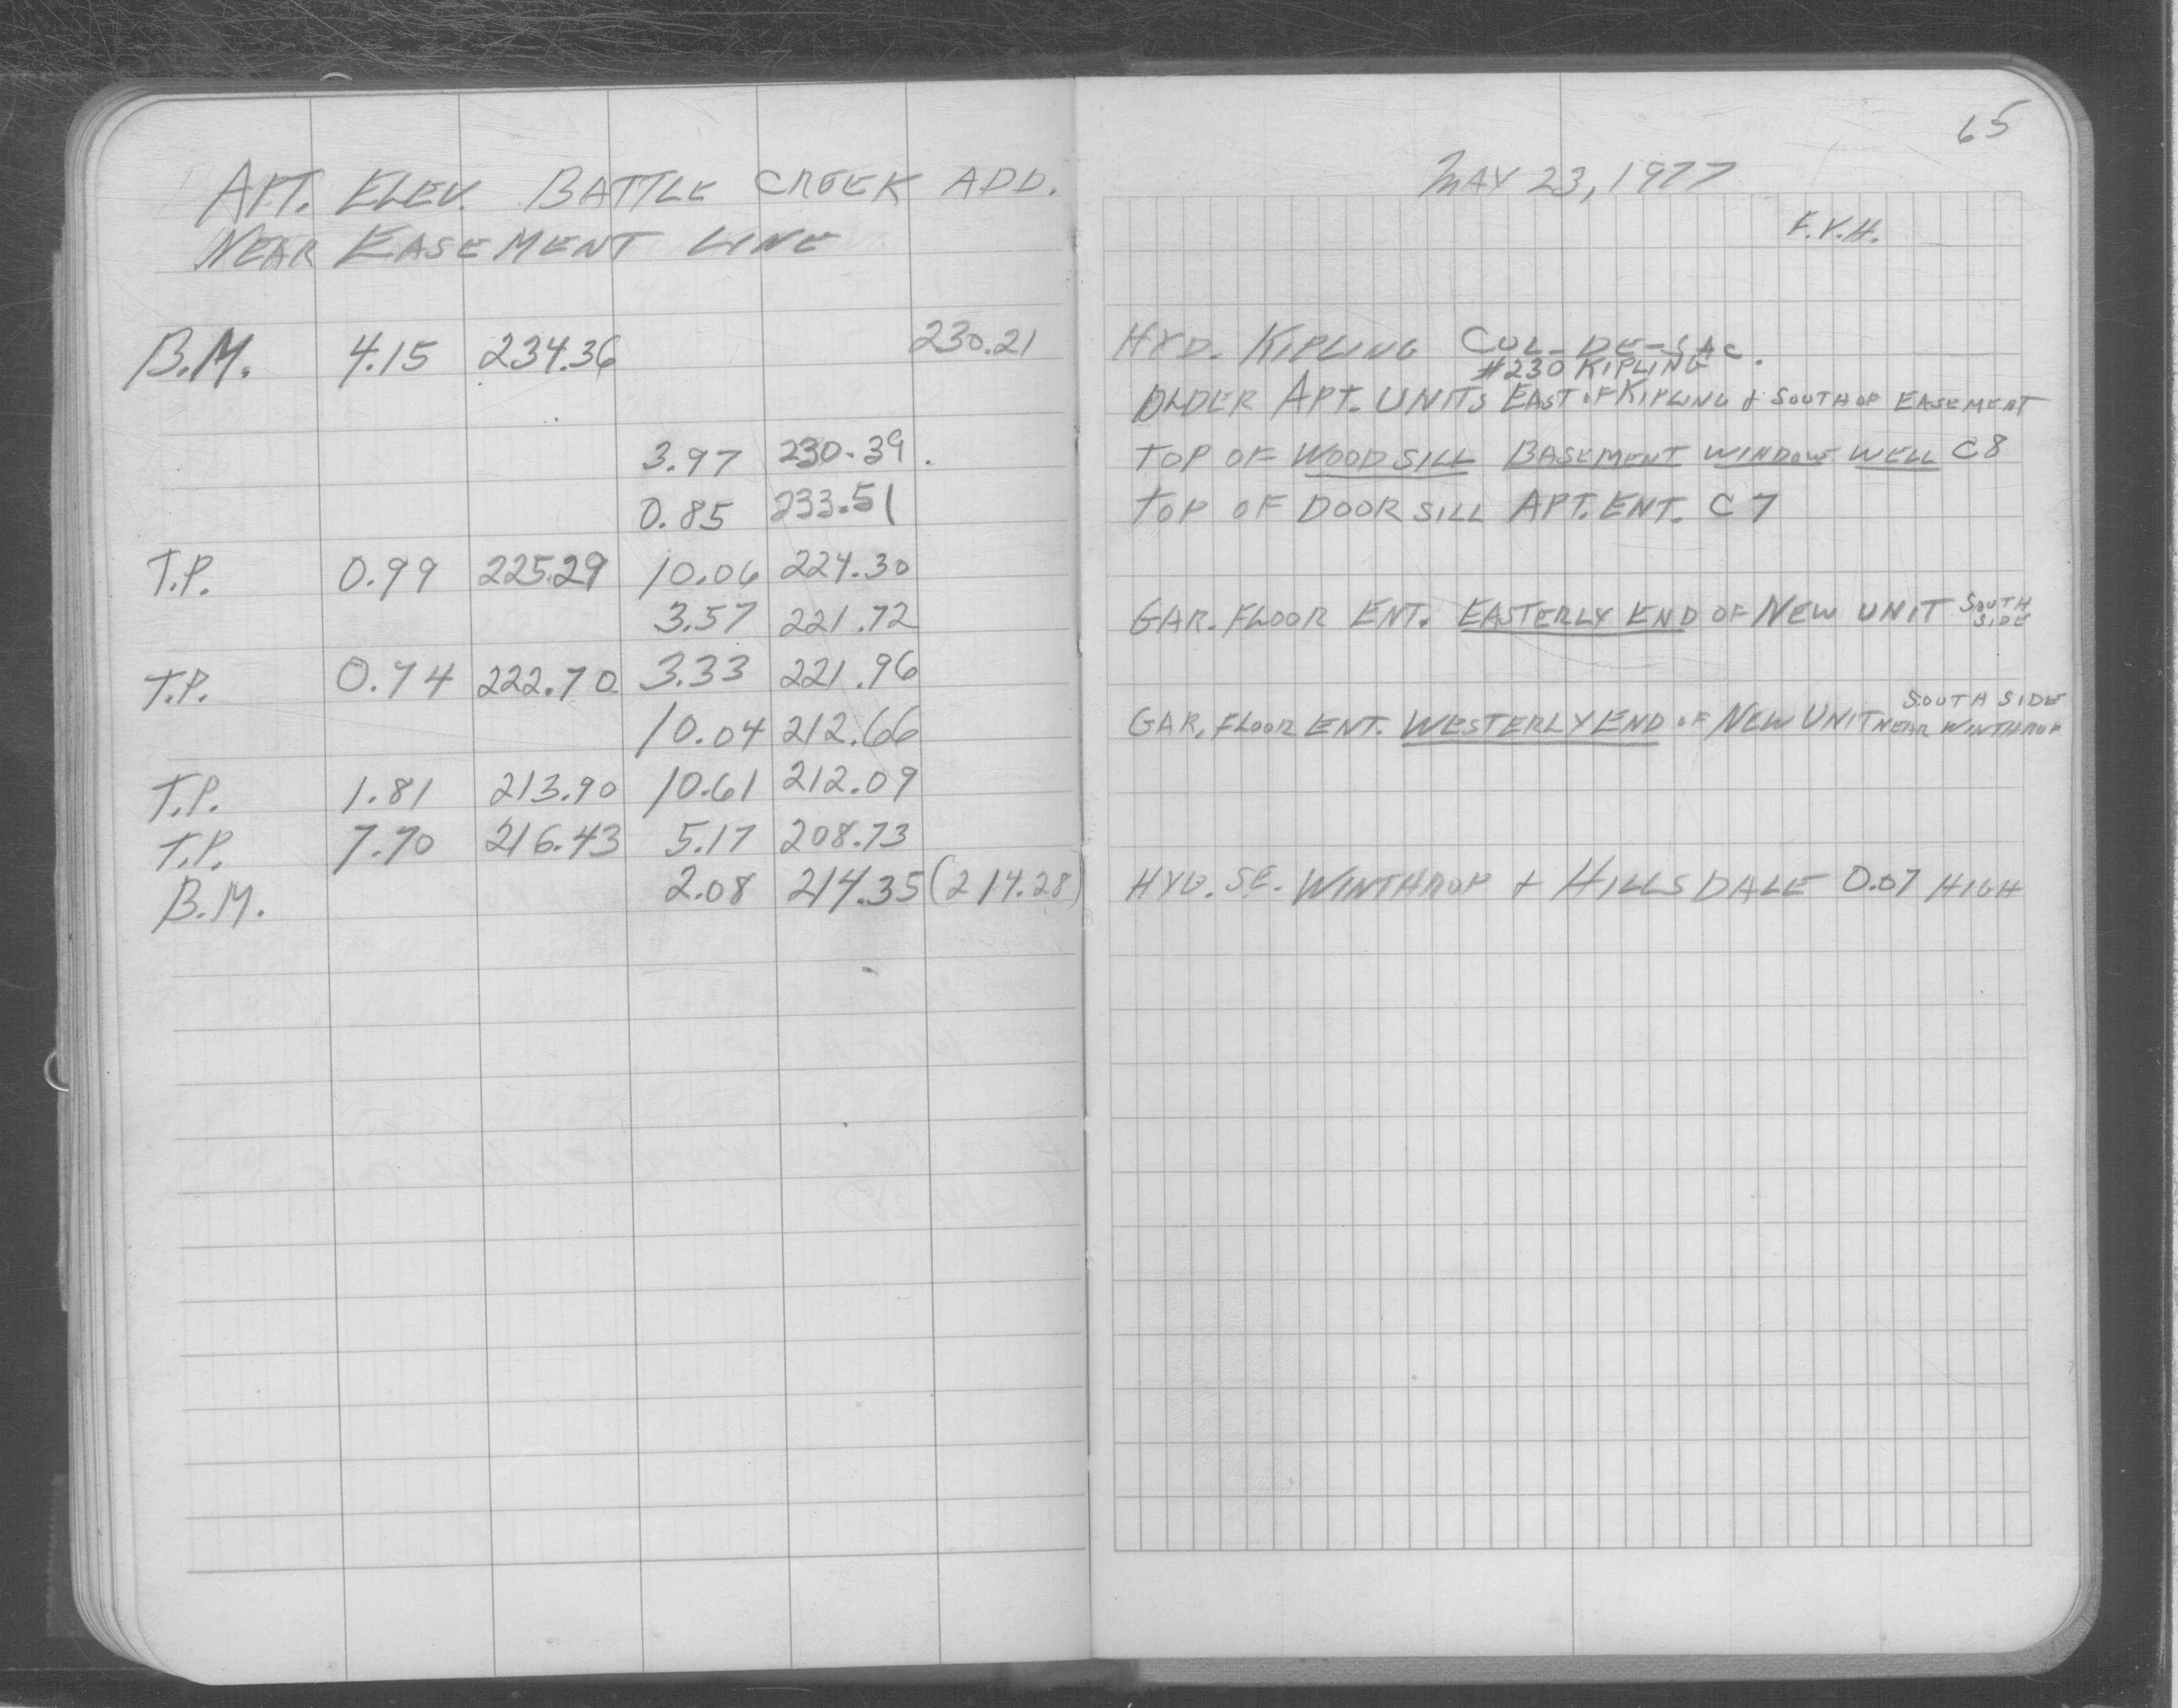 APT. ELEV. BATTLE CREEK ADD.
NEAR EASEMENT LINE
B.M. 4.15 234.36 230.21
3.97 230.39.
0.85 233.51
T.P. 0.99 225.29 10.06 224.30
3.57 221.72
T.P. 0.74 222.70 3.33 221.96
10.04 212.66
T.P. 1.81 213.90 10.61 212.09
T.P. 7.70 216.43 5.17 208.73
B.M. 2.08 214.35 (214.28)
65
MAY 23, 1977
F.V.H.
HYD. KIPLING CUL-DE-SAC.
#230 KIPLING
OLDER APT. UNITS EAST OF KIPLING & SOUTH OF EASEMENT
TOP OF WOOD SILL BASEMENT WINDOW WELL C8
TOP OF DOOR SILL APT. ENT. C7
GAR. FLOOR ENT. EASTERLY END OF NEW UNIT SOUTH
SIDE
SOUTH SIDE
GAR. FLOOR ENT. WESTERLY END OF NEW UNIT NEAR WINTHROP
HYD. SE. WINTHROP & HILLSDALE 0.07 HIGH